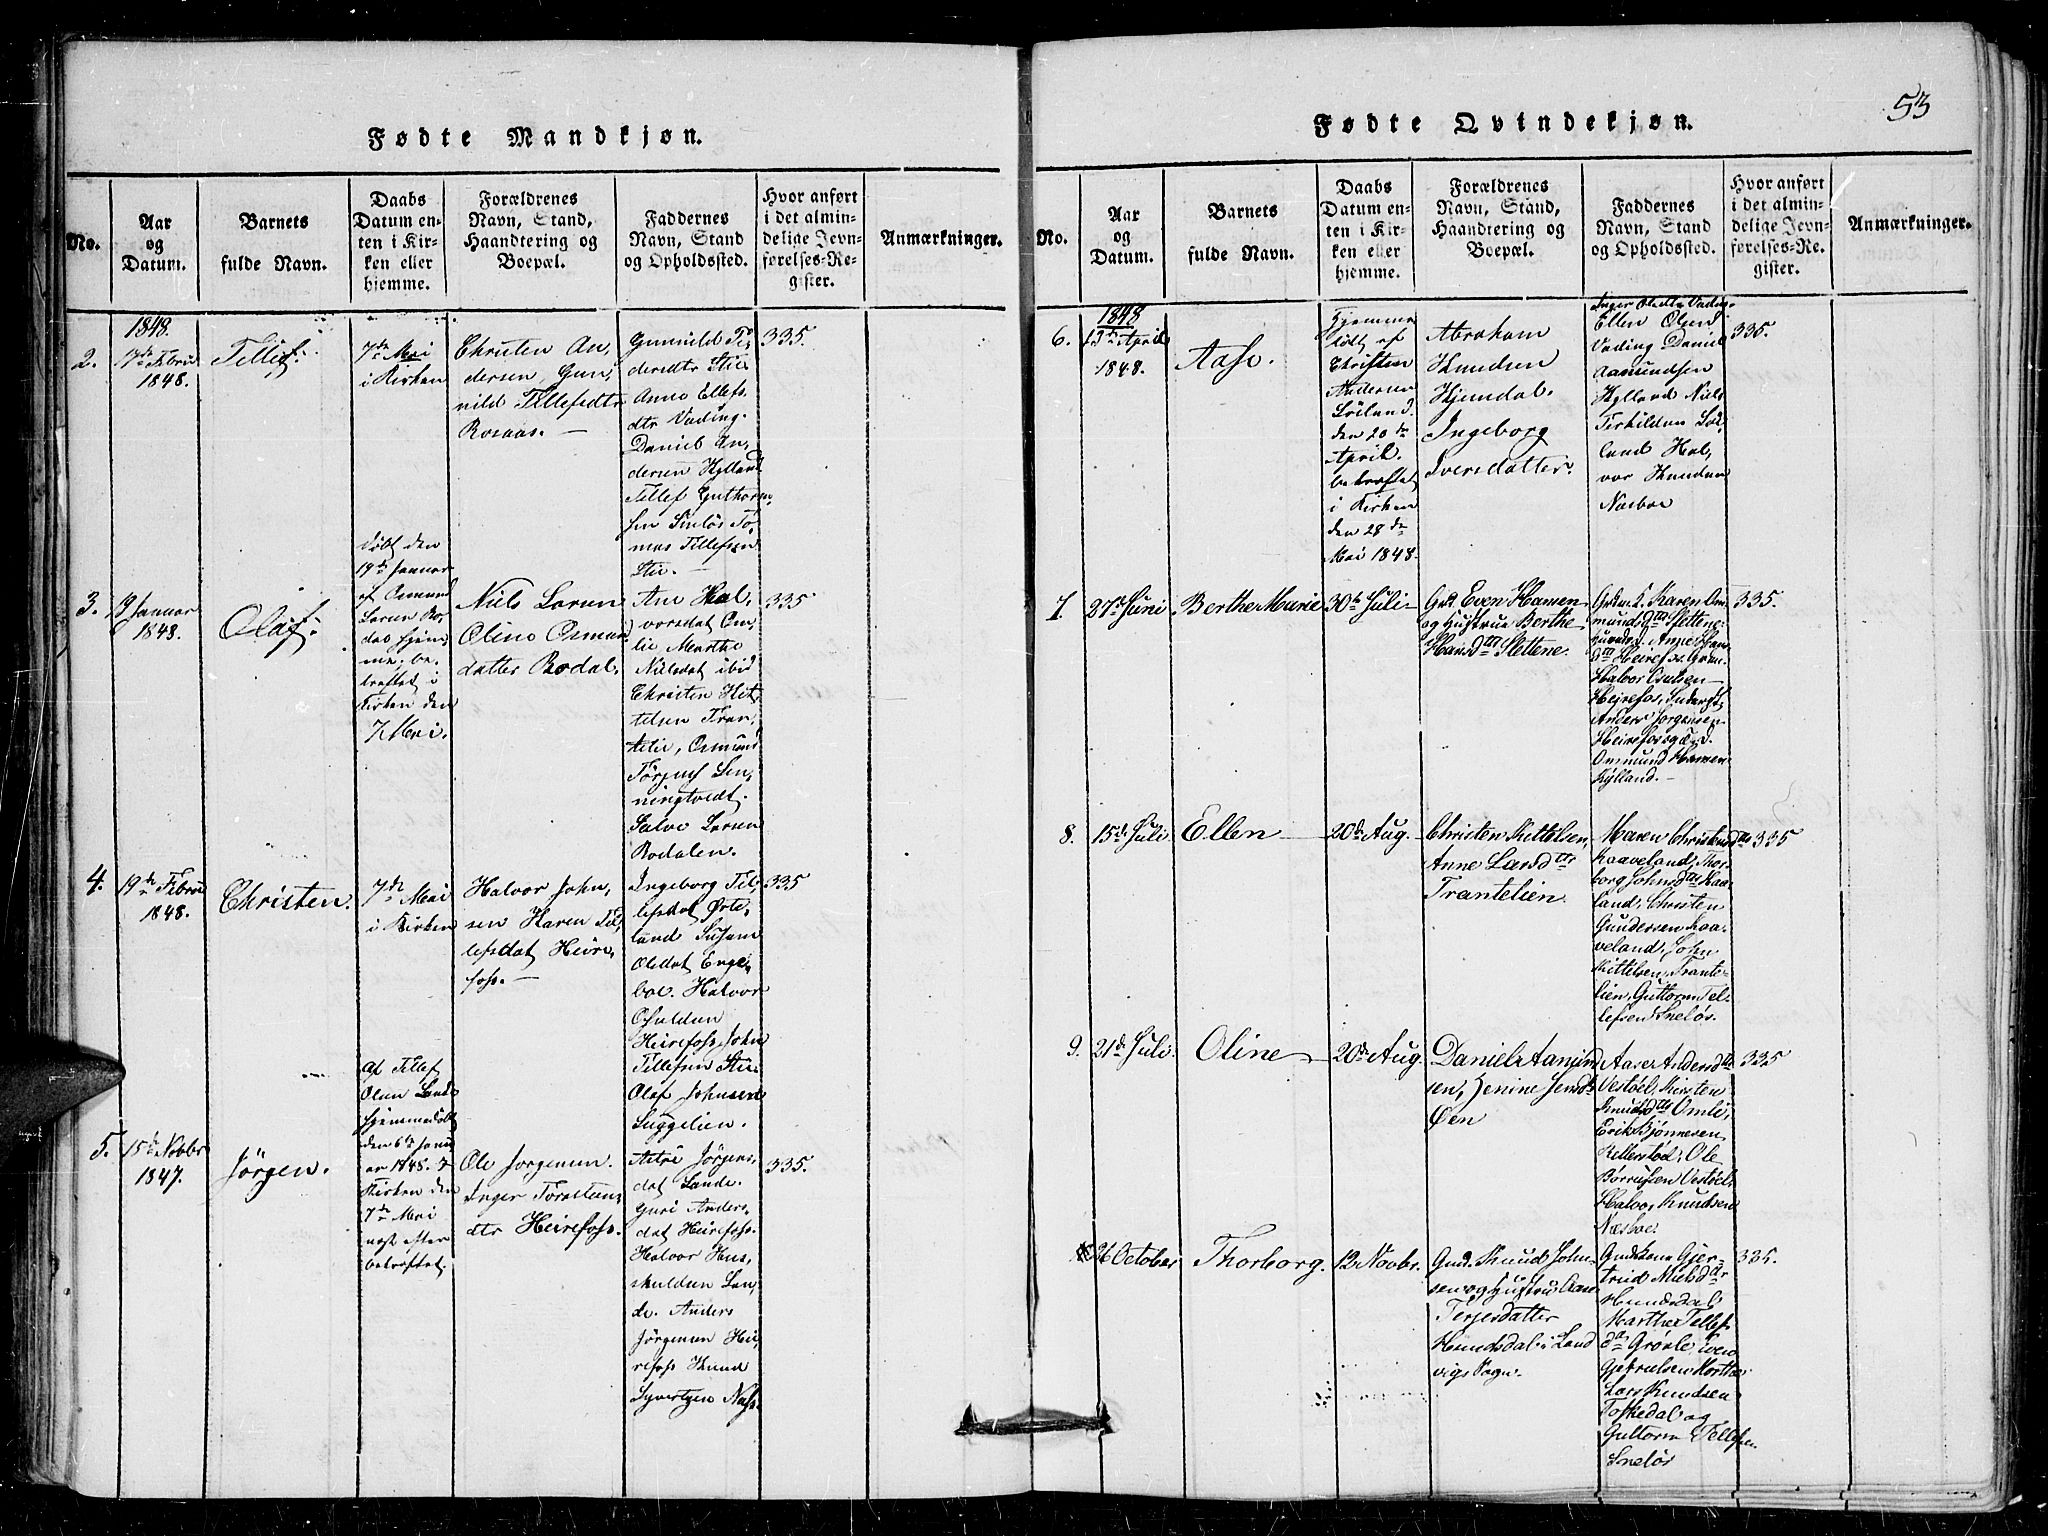 53
Fødte Mandkjøn.
No.
Aar
og
Datum.
Barnets
fulde Navn.
Daabs
Datum en-
ten i Kir-
ken eller
hjemme.
Forældrenes
Navn, Stand,
Haandtering og
Boepæl.
Faddernes
Navn, Stand
og Opholdssted.
Hvor anført
i det almin-
delige Jevn-
førelses-Re-
gister.
Anmærkninger.
2.
1848.
17de Febru
1848.
Tellef.
7de Mai
i Kirken
Christen An,
dersen, Gun,
nild Tellefsdtr
Rosaas. —
Gunnild Te,
deresdtr Stie
Anne Ellefs
dtr Vading.
Daniel An,
dersen Hylland
Tellef Guthorm,
sen Snelös To,
mas Tellefsen
Stie. —
335.
3.
19 Januar
1848.
Olaf.
döbt den
19de Januar
af Osmund
Larsen Ro,
dal hjem,
me, be,
kræftet i
Kirken den
7 Mai.
Niels Larsen
Oline Osmun
datter Rodal.
Ane Hal,
vorsdat Om,
lie Marthe
Nielsdat ibid
Christen Kit,
telsen Tran,
telie, Osmund
Törjus Sen,
ningtvedt.
Salve Larsen
Rodalen.
335
4.
19de Febru
1848.
Christen.
7de Mai
i Kirken
Halvor John,
sen Karen Tel,
lefsdat Heire,
foss. —
Ingeborg Tel,
lefsdat Örte,
land Susann
Olsdat Enge,
boe. Halvor
Osuldsen
Heirefoss, John
Tellefsen Stie.
Olaf Johnsen
Luggelien.
335
5.
15de Novbr
1847.
Jörgen.
Af Tellef
Olsen Lande
hjemmedöbt
den 6te Janu
ar 1848. I
Kirken den
7de Mai
næst efter
bekræftet.
Ole Jörgensen.
Inger Torsteins,
dtr Heirefoss.
Astri Jörgens,
dat Lande.
Guri Anders,
dat Heirefoss.
Halvor Hans,
skuldsen Lan,
de. Anders
Jörgensen Hei,
refoss Knud
Syvertsen Næs.
335.
Fødte Qvindekjøn.
No.
Aar
og
Datum.
Barnets
fulde Navn.
Daabs
Datum en-
ten i Kir-
ken eller
hjemme.
Forældrenes
Navn, Stand,
Haandtering og
Boepæl.
Faddernes
Navn, Stand
og Opholdssted.
Hvor anført
i det almin-
delige Jevn-
førelses-Re-
gister.
Anmærkninger.
6.
1848
13de April
1848.
Aase.
Hjemme
döbt af
Christen
Andersen
Löiland.
den 20de
April.
bekræftet
i Kirken
den 28de
Mai 1848.
Abraham
Knudsen
Hjemdal.
Ingeborg
Iversdatter.
Inger Olsdtr Vading.
Ellen Olsd
Vading Daniel
Aamundsen
Hylland Niels
Terkildsen Löi,
land Hal,
vor Knudsen
Næsboe
335.
7.
27de Juni
Berthe Marie
30te Juli
Grd. Even Hansen
og Hustrue Berthe
Hansdtr Slettene.
Grkm. K. Karen Om,
mundsdtr Slettene.
Anne Han
dtr Heirefos. Grm.
Halvor Osulsen
Heirefos,
Anders Jorgensen
Heirefos og
Ommund Hansen
Hylland. —
335.
8.
15de Juli.
Ellen
20de Aug.
Christen Kittelsen,
Anne Larsdtr
Trantelien.
Maren Christensdtr
Kaaveland, Thor
borg Johnsdtr Kaa,
land, Christen
Gundersen Kaa,
veland, John
Kittelsen, Trante,
lien, Guttorm Tel,
lefsen Snelös.
335
9.
21de Juli.
Oline
20de Aug
Daniel Aamund
sen, Jenine Jensdtr
Øen
Aase Andersdtr
Vestöel, Kirsten
Knudsdtr Omli,
Erik Björnesen
Ole
Vestöel,
Halvor Knudsen
Næsboe
335
26 October
Thorborg.
12 Novbr.
Gmd. Knud John,
sen og Hustru Aase
Terjesdatter
Hundsdal i Land
vigs Sogn.
Gmdkone Gjer,
trud Nielsdtr
Hundsdal
Marthe Tellefs
dtr Grösle, Even
Lars Knudsen
Toskedal og
Guttorm Tellefsen
Snelös
335.